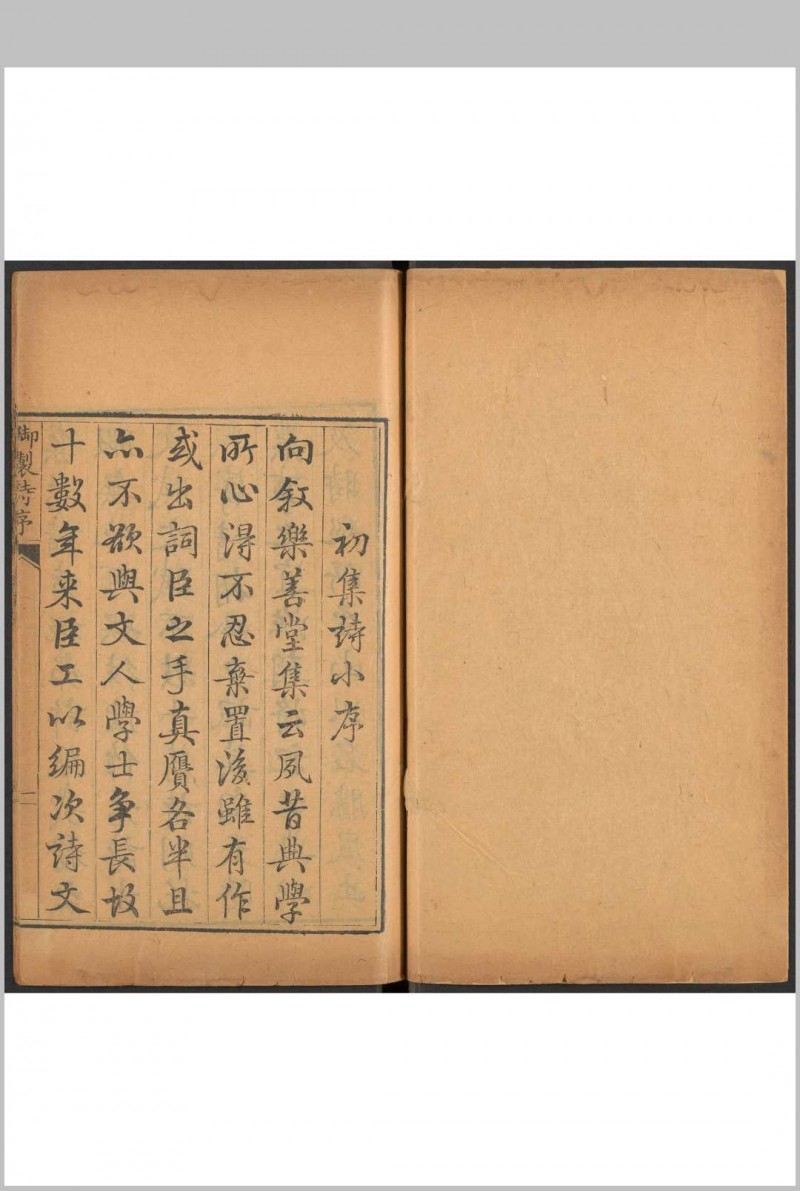 初集詩小序
向敘樂善堂集云夙昔典學
所心得不忍棄置後雖有作
或出詞臣之手真贗各半且
亦不欲與文人學士爭長故
十數年来臣工以編次詩文
御製詩序
一